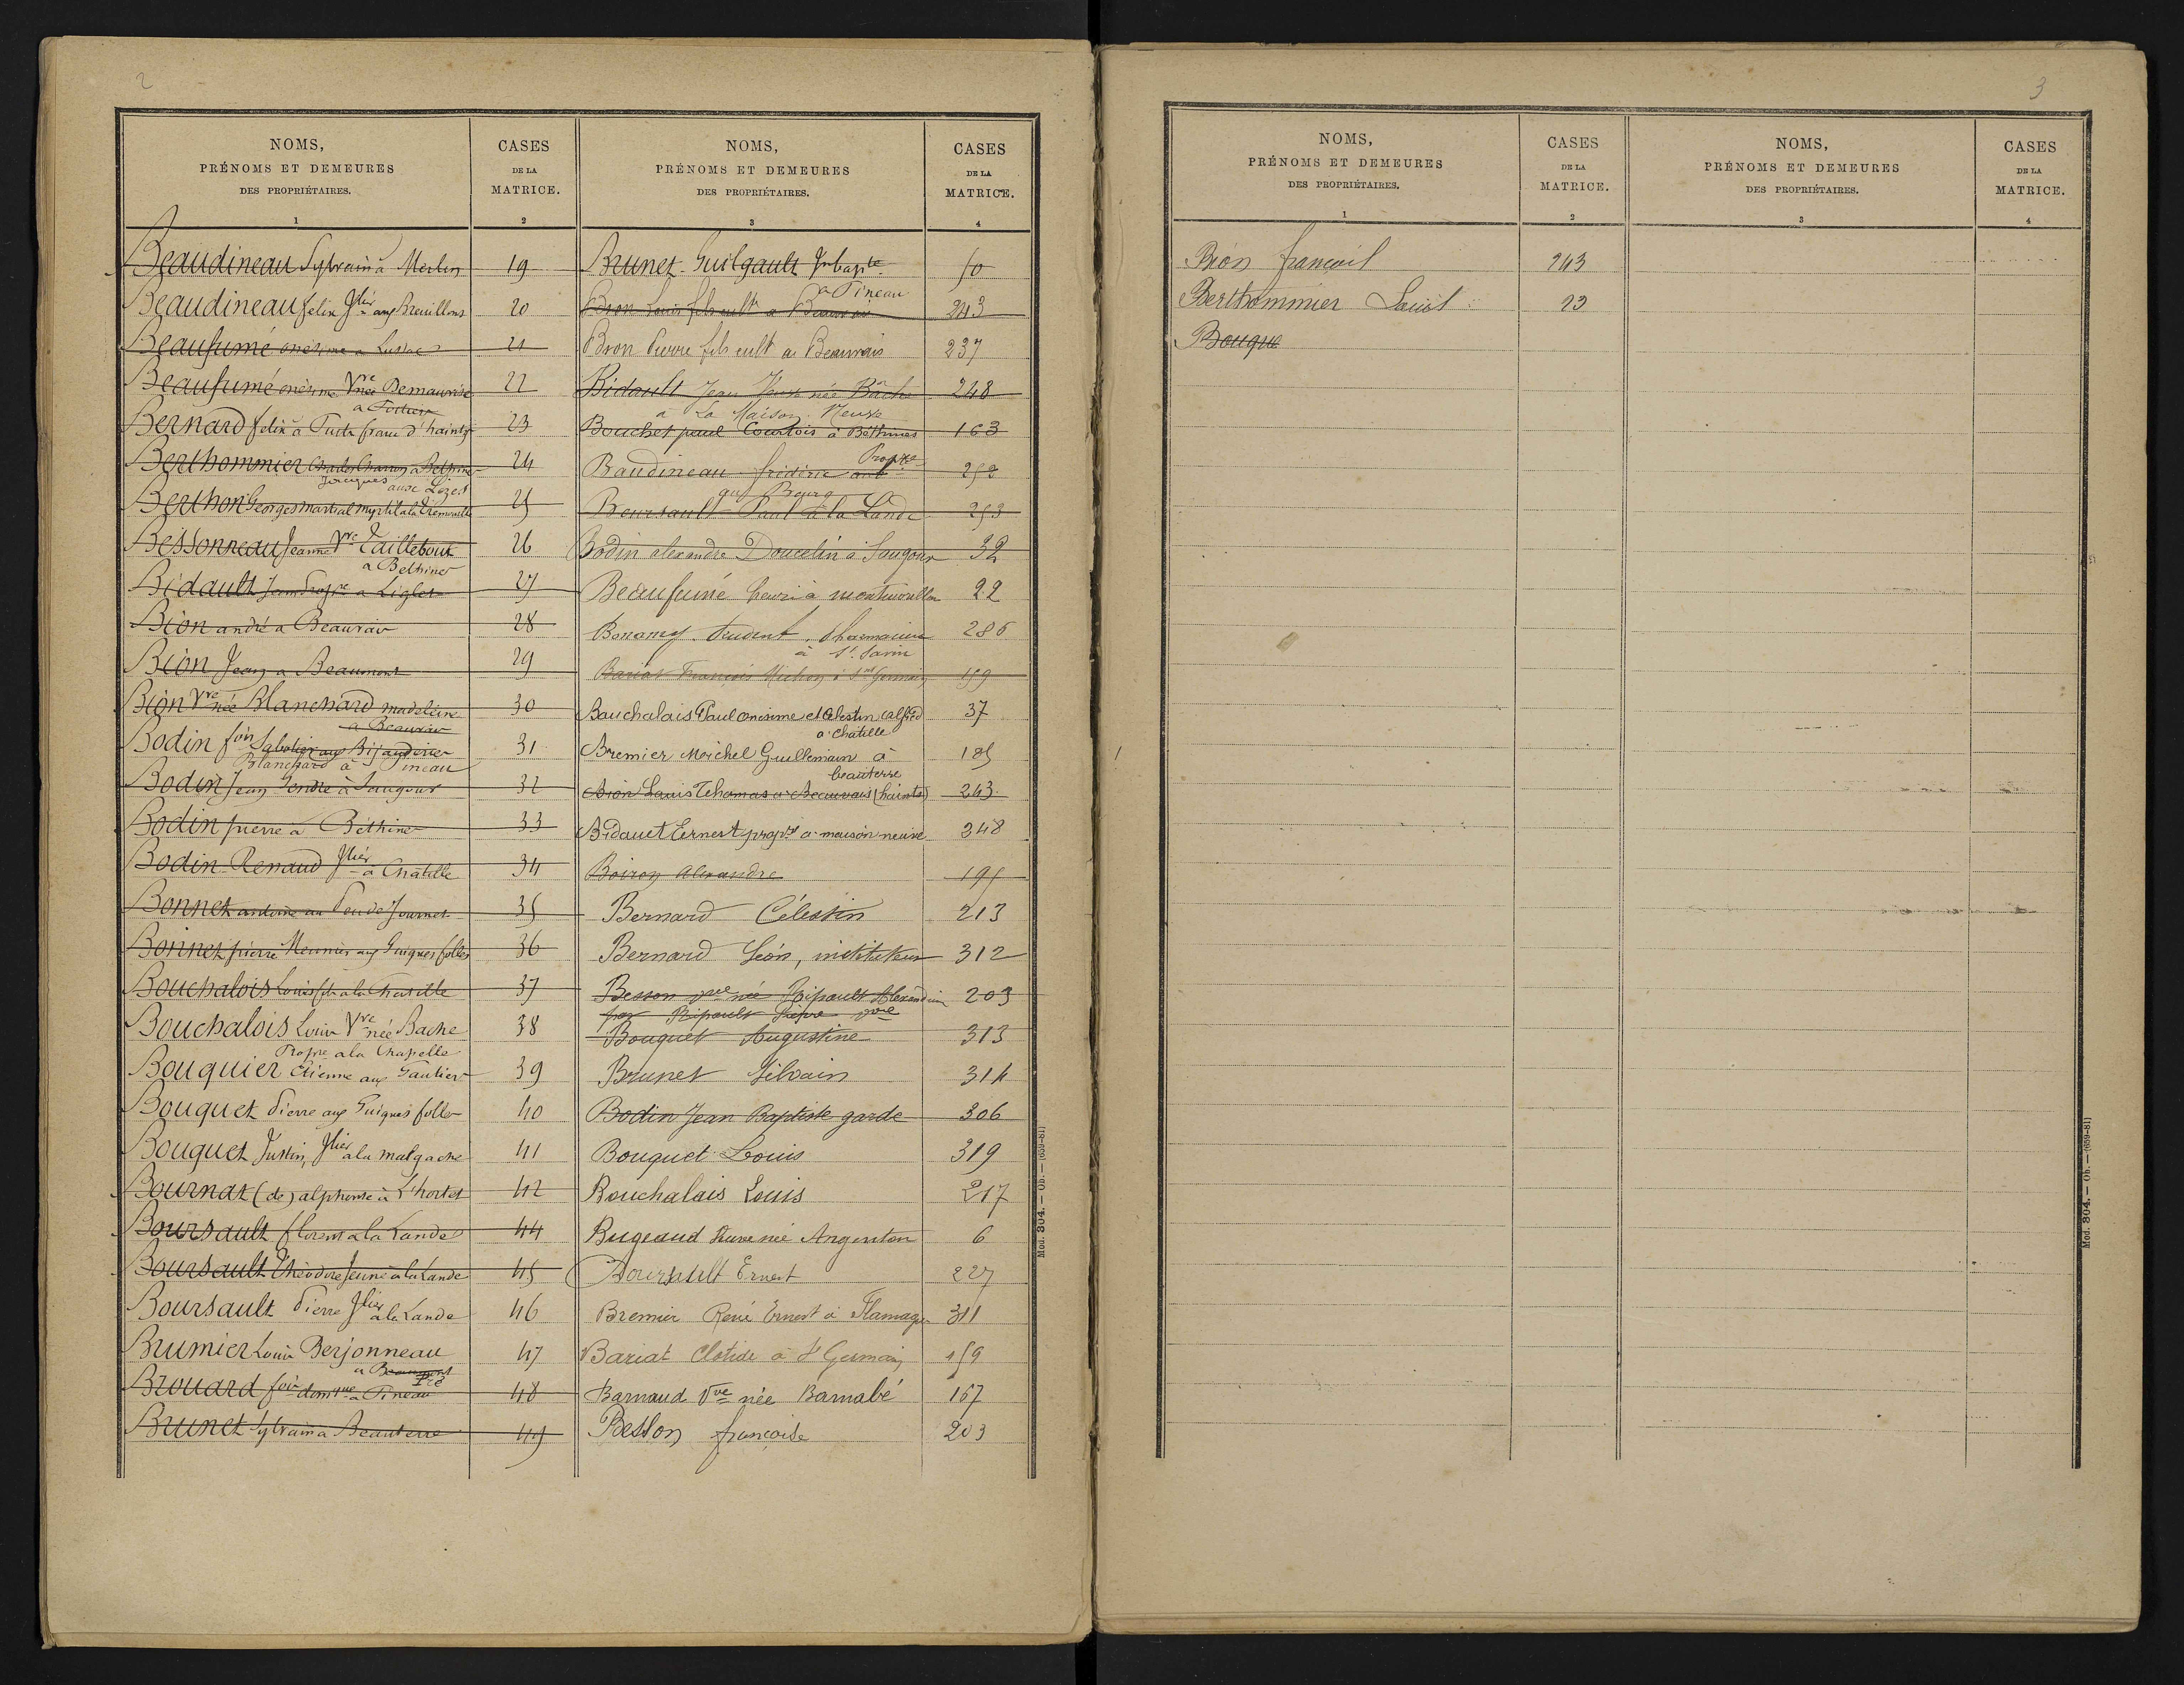 2
NOMS,
PRÉNOMS ET DEMEURES
DES PROPRIÉTAIRES.
1
CASES
DE LA
MATRICE.
2
Beaudineau Sylvain à Merlin 19
Beaudineau felix Jlier aux Breuillons 20
Beaufumé onésime a Lussac 21
Beaufumé onésime Vve née Demaurise 22
a Poitiers
Bernard felix à 23
Berthommier Charles Charron a Bethines 24
Jacques aux Lizes
Berthon Georges martial myrtil a la Trémouille 25
Bessonneau Jeanne Vve Taillebout 26
a Bethines
Bidault Jean Propre a Liglet 27
Bion andré a Beauvais 28
Bion Jean a Beaumont 29
Bion Vve née Blanchard madeleine 30
a Beauvais
Bodin fois Sabotier aux Bijauderies 31
Blanchard à Pineau
Bodin Jean Gendre à Saugoux 32
Bodin pierre à Bethines 33
Bodin Renaud Jlier à Chatille 34
Bonnet antoine au 35
Bonnet pierre Meunier aux Guignes folles 36
Bouchalois Louis fils a la Chatille 37
Bouchalois Louis Vve née Bache 38
Propre a la Chapelle
Bouquier Etienne aux Gautiers 39
Bouquet Pierre aux Guignes folles 40
Bouquet Justin, Jlier a la malgache 41
Bournat (de) alphonse à L'hortet 42
Boursault florent a la Lande 44
Boursault Théodore Jeune a la Lande 45
Boursault Pierre Jlier a la Lande 46
Brumier Louis Berjonneau 47
a Beaumont
Pré
Brouard fois domque a Pineau 48
Brunet Sylvain a Beauterre 49
NOMS,
PRÉNOMS ET DEMEURES
DES PROPRIÉTAIRES.
3
CASES
DE LA
MATRICE.
4
Brunet-Guilgault Jn bapte 50
a Pineau
Bion Louis fils cult a Beauvais 243
Bion Pierre fils cult a Beauvais 237
Bidault Jean Veuve née Bache 248
à La Maison Neuve
Bouchet paul Courtois à Béthines 163
Baudineau fréderic Propre 252
au Bourg
Boursault Paul à la Lande 253
Bodin alexandre Doucelin à Saugoux 32
Beaufumé henri à montmorillon 22
Bonamy Prudent, Pharmacien 286
à St. Savin
Bariat François Michon à St Germain 159
Bauchalais Paul onesime et Celestin alfred 37
a chatille
Bremier Meichel Guillemain à 185
beauterre
Bion Louis Thomas a Beauvais (haints) 243
Bidauet Ernest propre a maison neuve 248
Boiron Alexandre 195
Bernard Célestin 213
Bernard Léon, instituteur 312
Besson vve née Ripault Alexandrine 203
par Ripault vve
Bouquet Augustine 313
Brunet Silvain 314
Bodin Jean Baptiste garde 306
Bouquet Louis 319
Bouchalais Louis 217
Bugeaud Veuve née Argenton 6
Boursault Ernest 227
Bremier René Ernest à 311
Bariat Clotide à St Germain 159
Barnaud Vve née Barnabé 167
Besson françoise 203
Mod. 304. — Ob. — (659-81)
3
NOMS,
PRÉNOMS ET DEMEURES
DES PROPRIÉTAIRES.
1
CASES
DE LA
MATRICE.
2
Bion françois 243
Berthommier Louis 23
Bouque
NOMS,
PRÉNOMS ET DEMEURES
DES PROPRIÉTAIRES.
3
CASES
DE LA
MATRICE.
4
Mod. 304. — Ob. — (659-81)